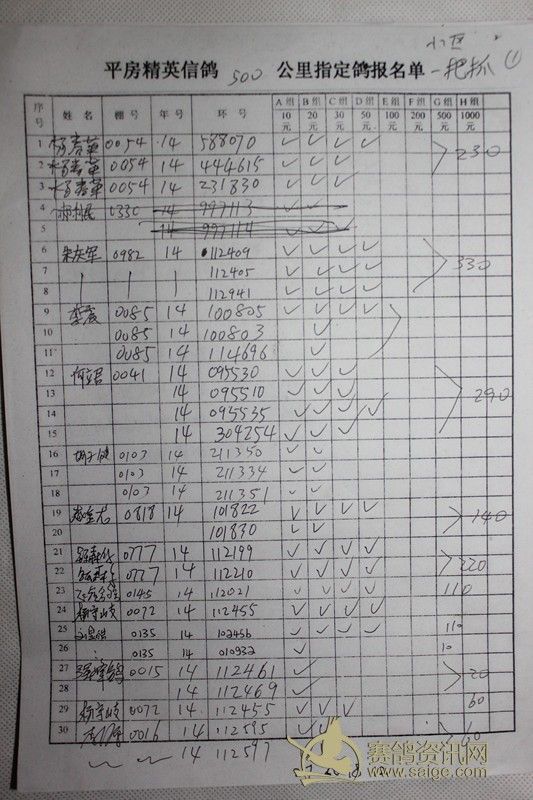 小区
平房精英信鸽 500 公里指定鸽报名单 一把抓 ①
序号 姓名 棚号 年号 环号 A组10元 B组20元 C组30元 D组50元 E组100元 F组200元 G组500元 H组1000元
1 0054 14 588070 ✓ ✓ ✓ ✓
2 0054 14 444615 ✓ ✓ ✓ 230
3 0054 14 231830 ✓ ✓ ✓
4 14 997113 ✓ ✓
5 14 997114 ✓ ✓ ✓
6 朱庆军 0982 14 112409 ✓ ✓ ✓ ✓
7 112405 ✓ ✓ ✓ ✓ 330
8 112941 ✓ ✓ ✓ ✓
9 李震 0085 14 100805 ✓ ✓ ✓ ✓
10 0085 14 100803 ✓
11 0085 14 114696 ✓
12 0041 14 095530 ✓ ✓ ✓
13 14 095510 ✓ ✓ ✓ 290
14 14 095535 ✓ ✓ ✓ ✓
15 14 304254 ✓ ✓ ✓
16 0103 14 211350 ✓ ✓
17 0103 14 211334 ✓ ✓
18 0103 14 211351 ✓ ✓
19 0818 14 101822 ✓ ✓ ✓ ✓ 140
20 101830 ✓ ✓
21 0777 14 112199 ✓ ✓ ✓ ✓
22 0777 14 112210 ✓ ✓ ✓ ✓ 220
23 0145 14 112021 ✓ ✓ ✓ ✓ 110
24 杨守岐 0072 14 112455 ✓ ✓ ✓ ✓
25 0135 14 102456 ✓ ✓ ✓ ✓ 110
26 0135 14 010932 ✓ 10
27 0015 14 112461 ✓ 20
28 14 112469 ✓
29 杨守岐 0072 14 112455 ✓ ✓ ✓ 60
30 0016 14 112595 ✓ ✓ 60
14 112597
赛鸽资讯网
www.saige.com